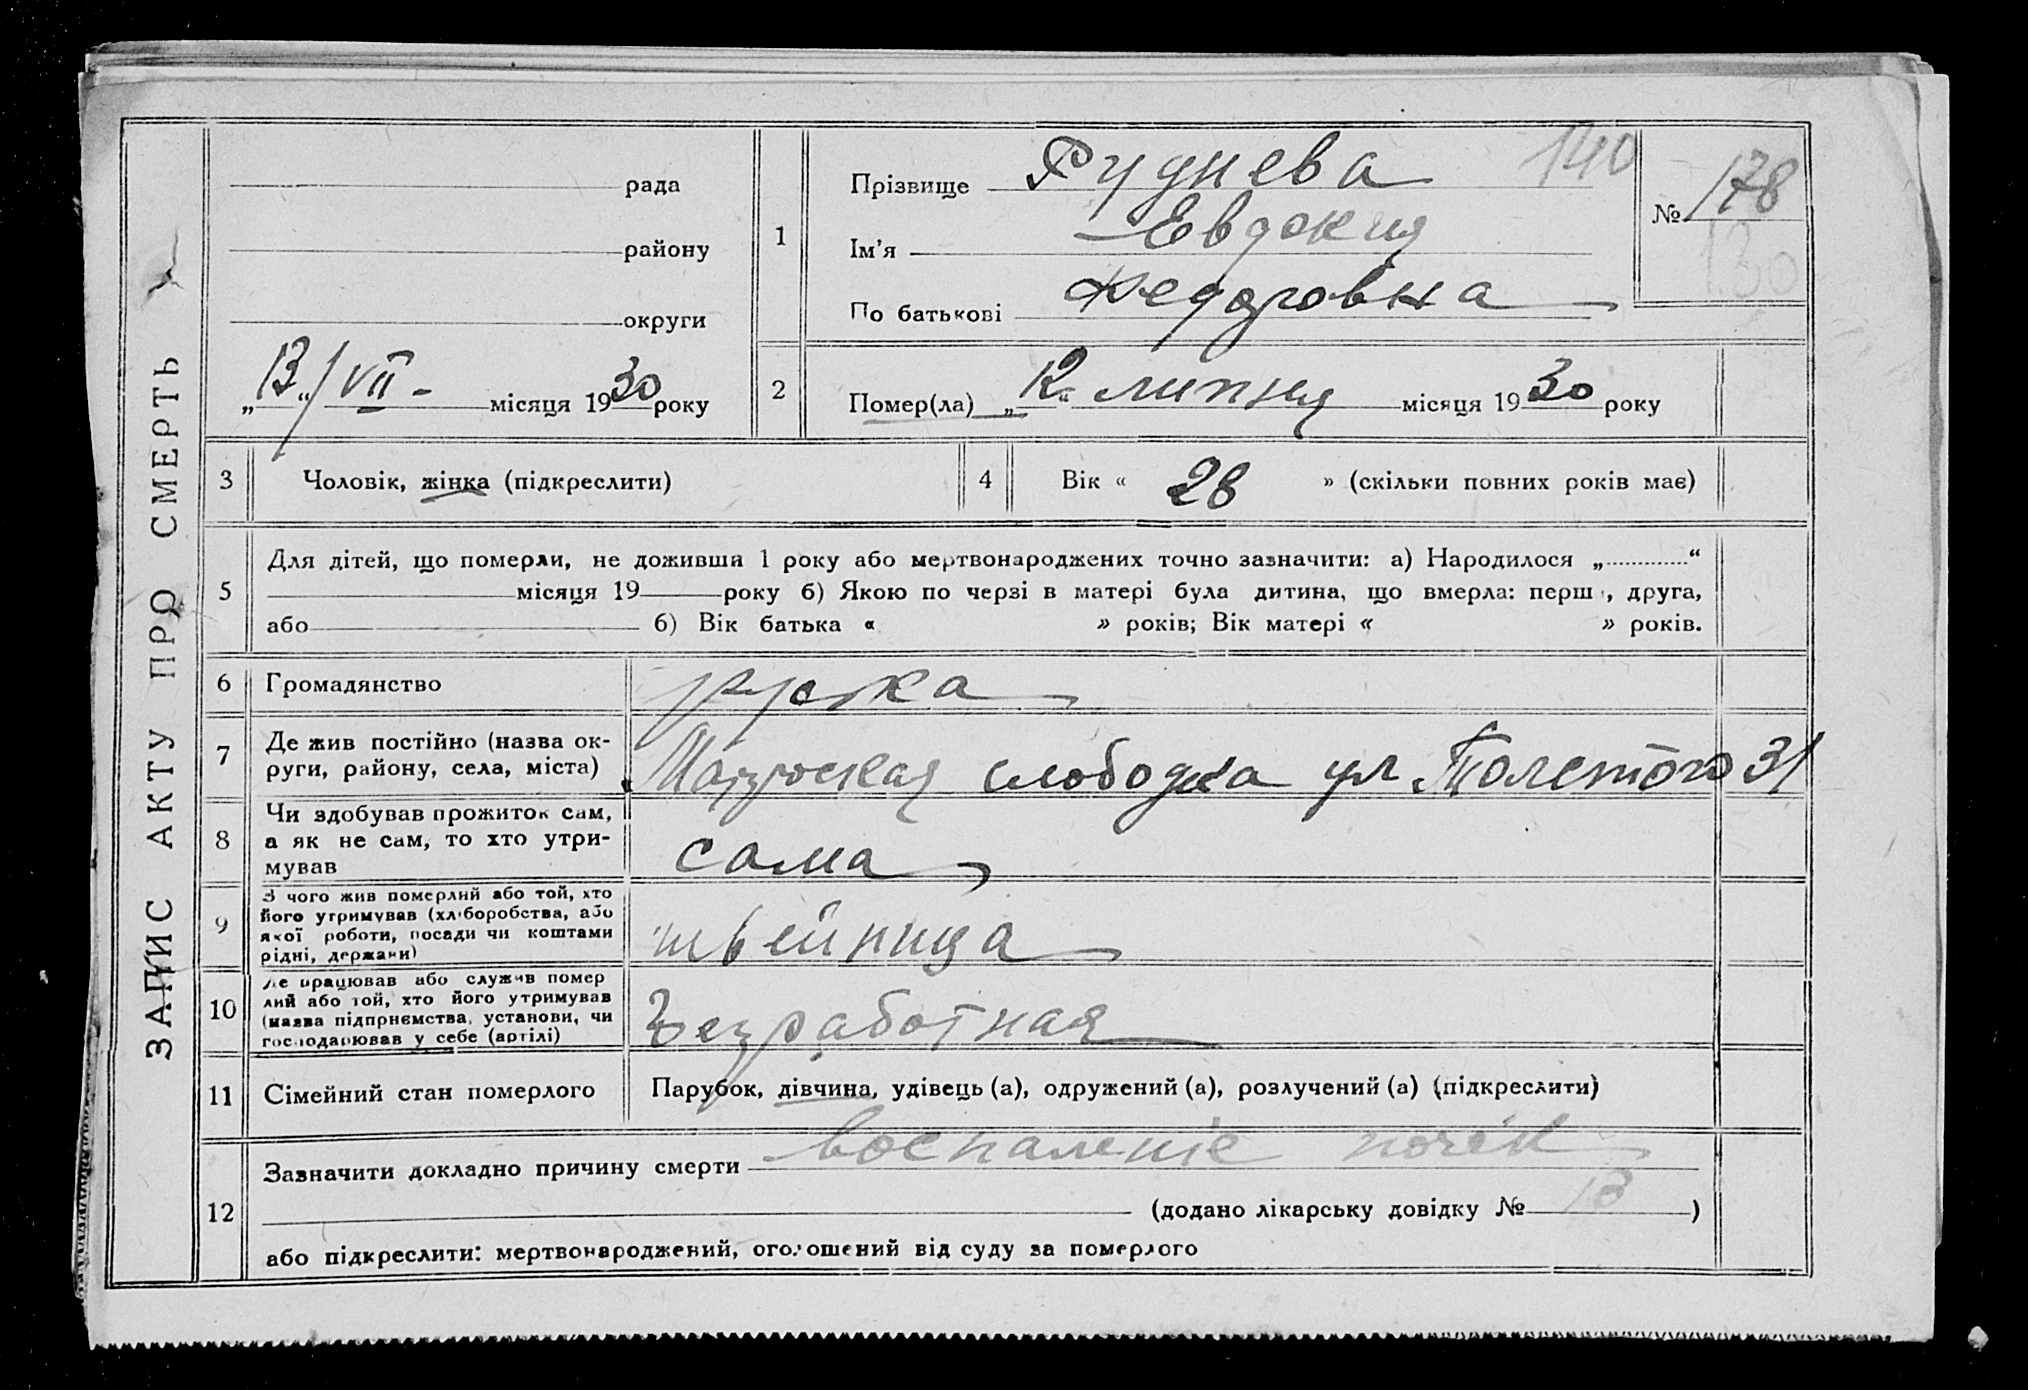 ЗАПИС АКТУ ПРО СМЕРТЬ
рада
району
округи
„13“/VII - місяця 1930 року
1
Прізвище Руднева
Ім'я Евдокия
По батькові Федоровна
140
№ 178
130
2
Помер(ла) „12“ липня місяця 1930 року
3
Чоловік, жінка (підкреслити)
4
Вік « 28 » (скільки повних років має)
5
Для дітей, що померли, не доживши 1 року або мертвонароджених точно зазначити: а) Народилося „ “
місяця 19 року б) Якою по черзі в матері була дитина, що вмерла: перша, друга,
або б) Вік батька « » років; Вік матері « » років.
6
Громадянство руска
7
Де жив постійно (назва ок-
руги, району, села, міста)
слободка ул Толстого 31
8
Чи здобував прожиток сам,
а як не сам, то хто утри-
мував
сама
9
З чого жив померлий або той, хто
його утримував (хліборобства, або
якої роботи, посади чи коштами
рідні, держави)
швейница
10
Де працював або служив помер
лий або той, хто його утримував
(назва підприємства, установи, чи
господарював у себе (артілі)
Безработная
11
Сімейний стан померлого
Парубок, дівчина, удівець (а), одружений (а), розлучений (а) (підкреслити)
12
Зазначити докладно причину смерти воспаление почек
(додано лікарську довідку № 13 )
або підкреслити: мертвонароджений, оголошений від суду за померлого